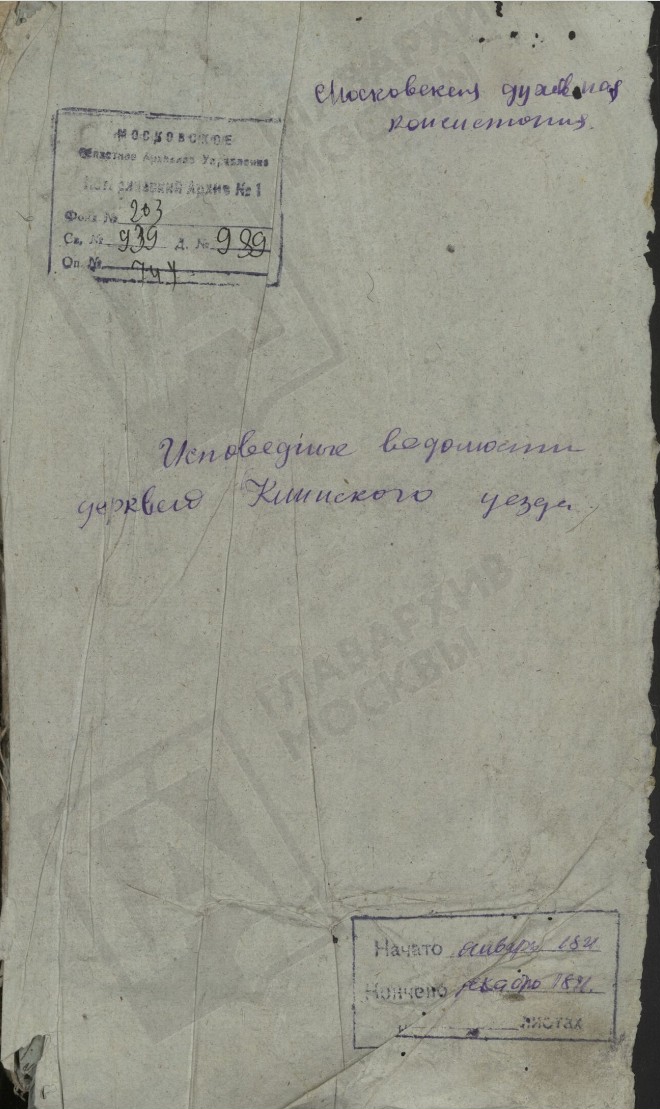 Московская духовная
консистория.
МОСКОВСКОЕ
Областное Архивное Управление
Исторический Архив № 1
Фонд № 203
Св. № 939 Д. № 939
Оп. №
Исповедные ведомости
церквей Клинского уезда
ГЛАВАРХИВ
МОСКВЫ
Начато январь
Кончено декабрь
листах